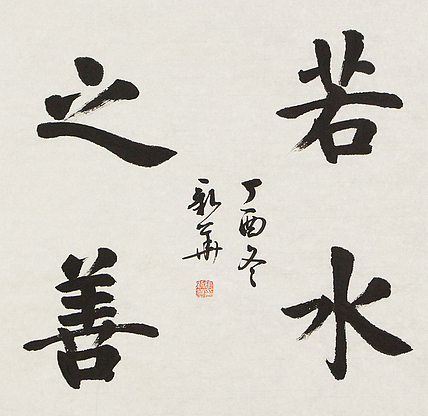 若水
之善
丁酉冬
新華